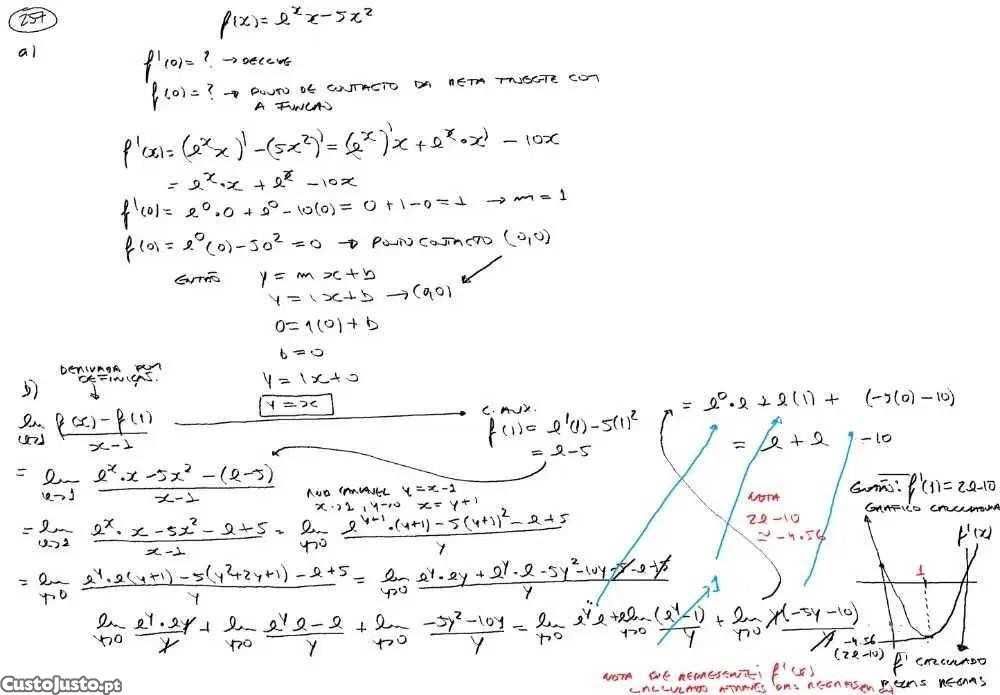 257
f(x) = e^x x - 5x^2
a)
f'(0) = ? → DECLIVE
f(0) = ? → PONTO DE CONTACTO DA RETA TANGENTE COM
A FUNÇÃO
f'(x) = (e^x x)' - (5x^2)' = (e^x)' x + e^x · x' - 10x
= e^x · x + e^x - 10x
f'(0) = e^0 · 0 + e^0 - 10(0) = 0 + 1 - 0 = 1 → m = 1
f(0) = e^0 (0) - 50^2 = 0 → PONTO CONTACTO (0,0)
ENTÃO y = mx + b
y = 1x + b → (0,0)
0 = 1(0) + b
b = 0
y = 1x + 0
y = x
b) DERIVADA POR
DEFINIÇÃO.
lim x→1 f(x) - f(1) / x - 1
C. AUX.
f(1) = e^1(1) - 5(1)^2
= e - 5
= lim x→1 e^x · x - 5x^2 - (e - 5) / x - 1
y = x - 1
x→1, y→0 x = y + 1
= lim x→1 e^x · x - 5x^2 - e + 5 / x - 1 = lim y→0 e^{y+1} · (y+1) - 5(y+1)^2 - e + 5 / y
= lim y→0 e^y · e(y+1) - 5(y^2 + 2y + 1) - e + 5 / y = lim y→0 e^y · ey + e^y · e - 5y^2 - 10y - 5 - e + 5 / y
lim y→0 e^y · ey / y + lim y→0 e^y e - e / y + lim y→0 -5y^2 - 10y / y = lim y→0 e^y e + e lim y→0 (e^y - 1) / y + lim y→0 y(-5y - 10) / y
1
= e^0 · e + e(1) + (-5(0) - 10)
= e + e - 10
NOTA
2e - 10
≈ -4.56
ENTÃO: f'(1) = 2e - 10
GRÁFICO CALCULADORA
f'(x)
1
-4.56
(2e - 10)
f' CALCULADO
PELAS REGRAS
NOTA QUE REPRESENTEI f'(x)
CALCULADO ATRAVÉS DAS REGRAS
CustoJusto.pt